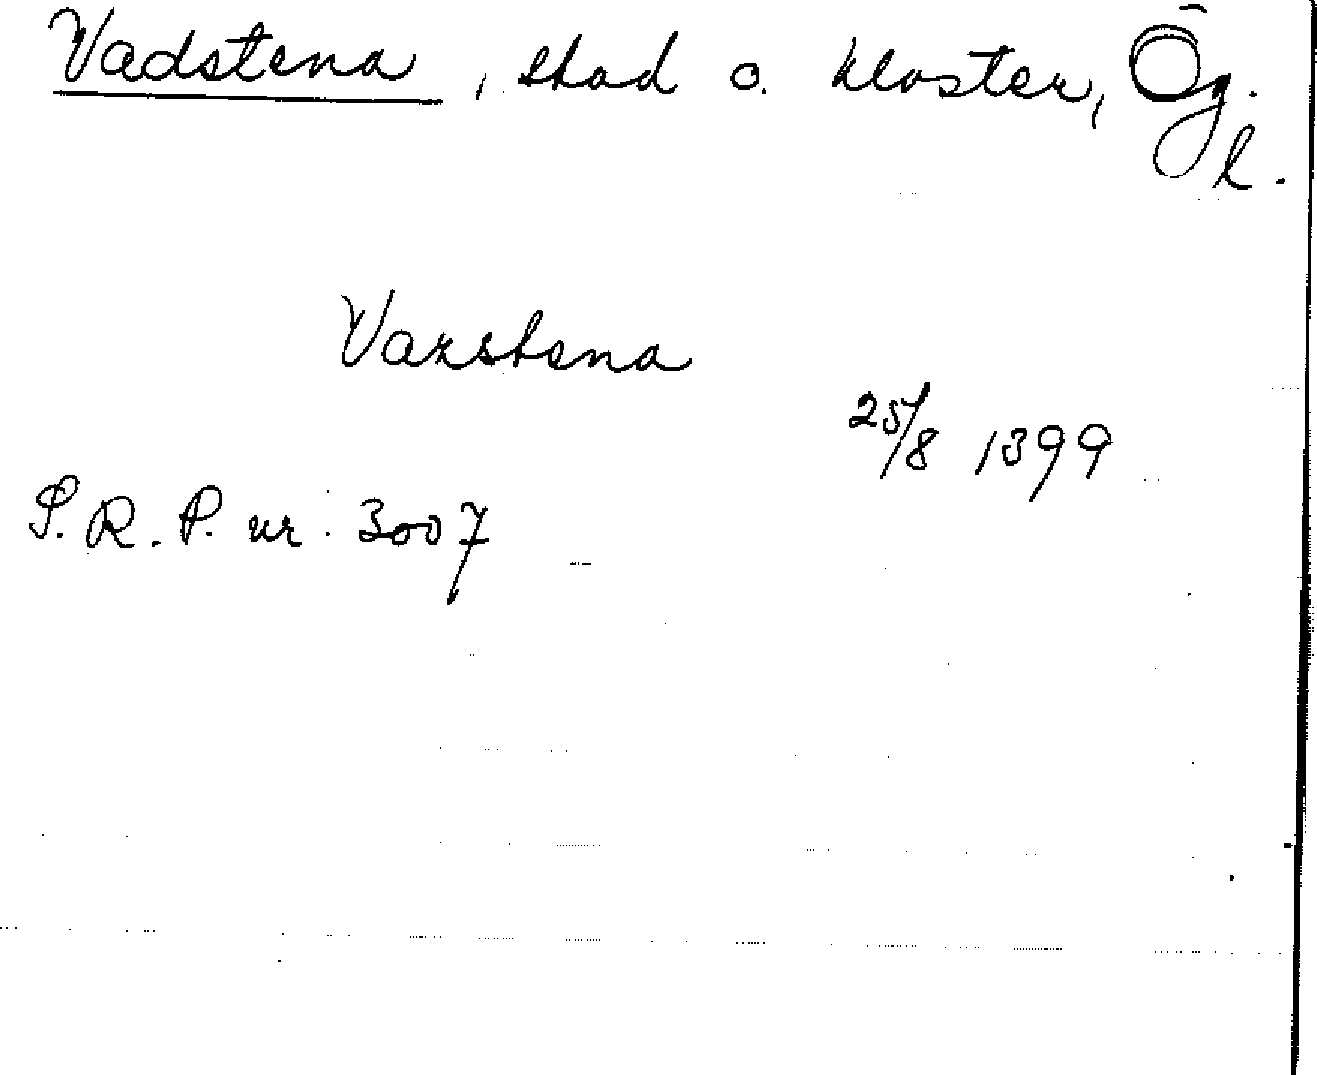 Vadstena, stad o. kloster, Ög. l.
Vazstena
25/8 1399
S.R.P. nr. 3007